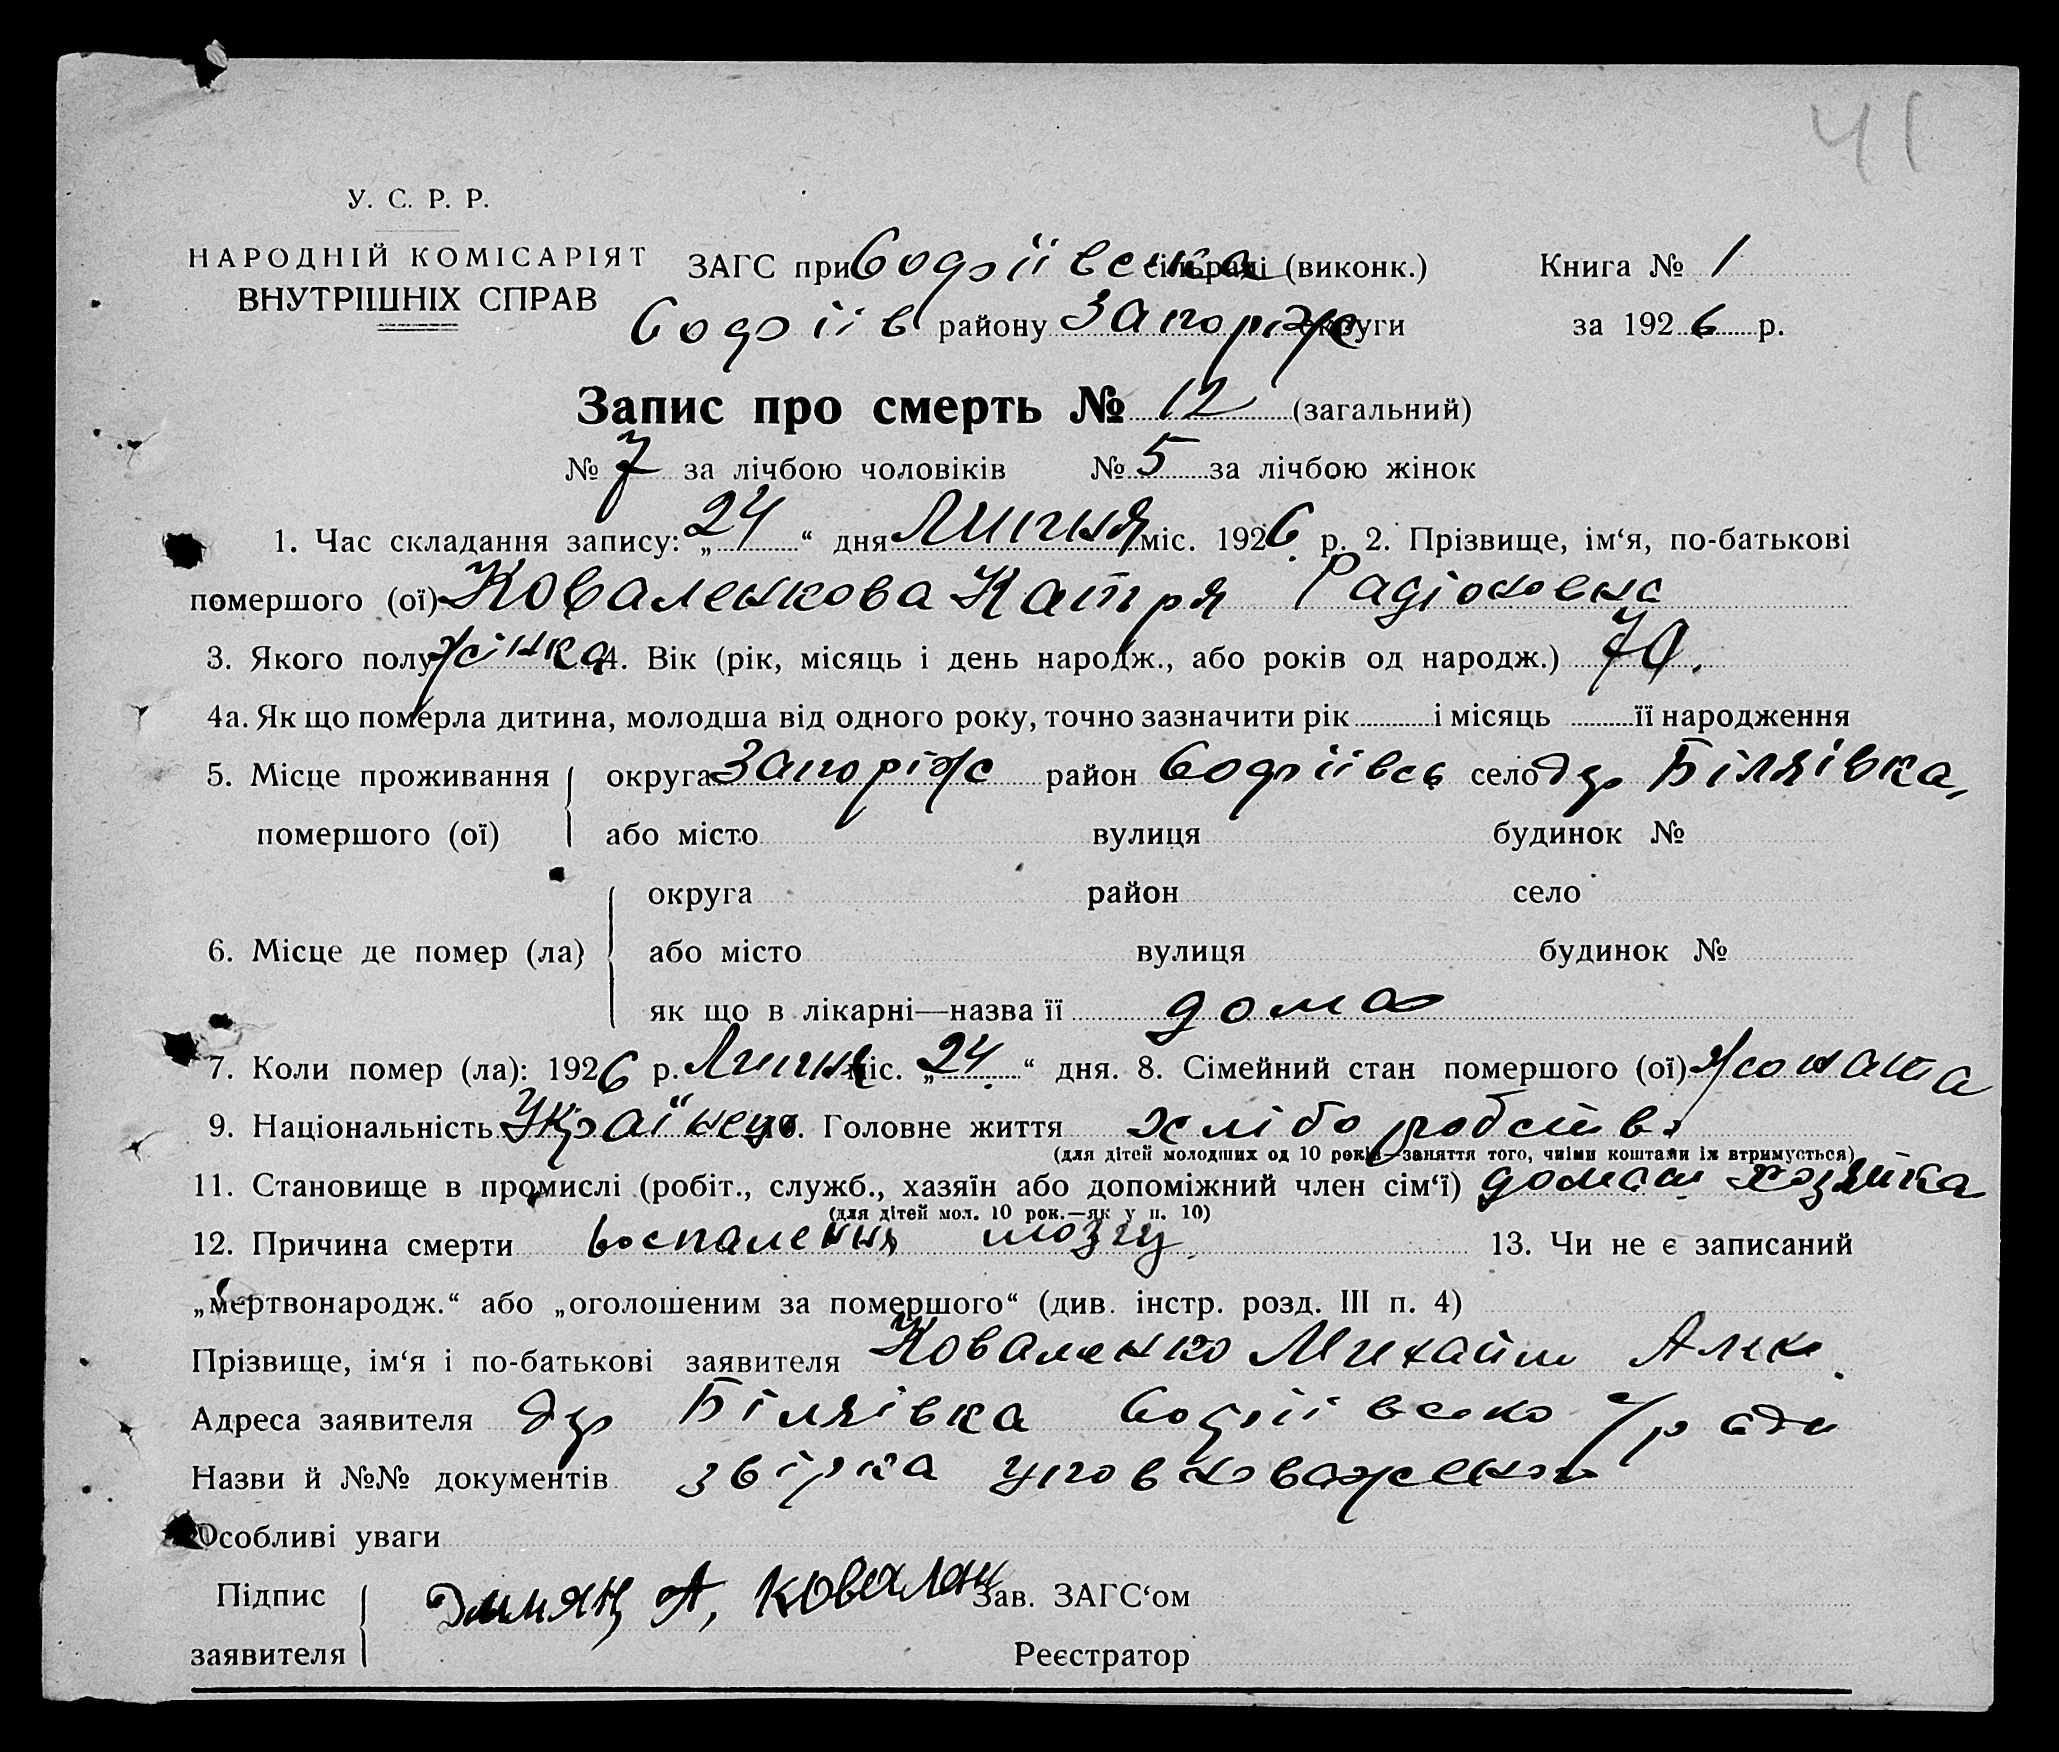 41
У. С. Р. Р.
НАРОДНІЙ КОМІСАРІЯТ
ВНУТРІШНІХ СПРАВ
ЗАГС при Софіївська сільраді (виконк.) Книга № 1
Софіїв району Запоріж округи за 1926 р.
Запис про смерть № 12 (загальний)
№ 7 за лічбою чоловіків № 5 за лічбою жінок
1. Час складання запису: „24“ дня Липня міс. 1926 р. 2. Прізвище, ім‘я, по-батькові
помершого (ої) Коваленкова Катря Радіоновна
3. Якого полу жінка 4. Вік (рік, місяць і день народж., або років од народж.) 70.
4а. Як що померла дитина, молодша від одного року, точно зазначити рік і місяць її народження
5. Місце проживання округа Запоріж район Софіївсь село Біляївка,
помершого (ої) або місто вулиця будинок №
округа район село
6. Місце де помер (ла) або місто вулиця будинок №
як що в лікарні—назва її дома
7. Коли помер (ла): 1926 р. Липня міс. „24.“ дня. 8. Сімейний стан помершого (ої) жоната
9. Національність Українець 10. Головне життя хліборобств
(для дітей молодших од 10 років—заняття того, чиїми коштами їх втримується)
11. Становище в промислі (робіт., служб., хазяїн або допоміжний член сім‘ї) домаш хозяйка
(для дітей мол. 10 рок.—як у п. 10)
12. Причина смерти воспалення мозгу 13. Чи не є записаний
„мертвонародж.“ або „оголошеним за помершого“ (див. інстр. розд. III п. 4)
Прізвище, ім‘я і по-батькові заявителя Коваленко Михайло
Адреса заявителя Біляївка Софіївсько
Назви й №№ документів звірка уповноваженого
Особливі уваги
Підпис А, Ковален Зав. ЗАГС‘ом
заявителя Реєстратор